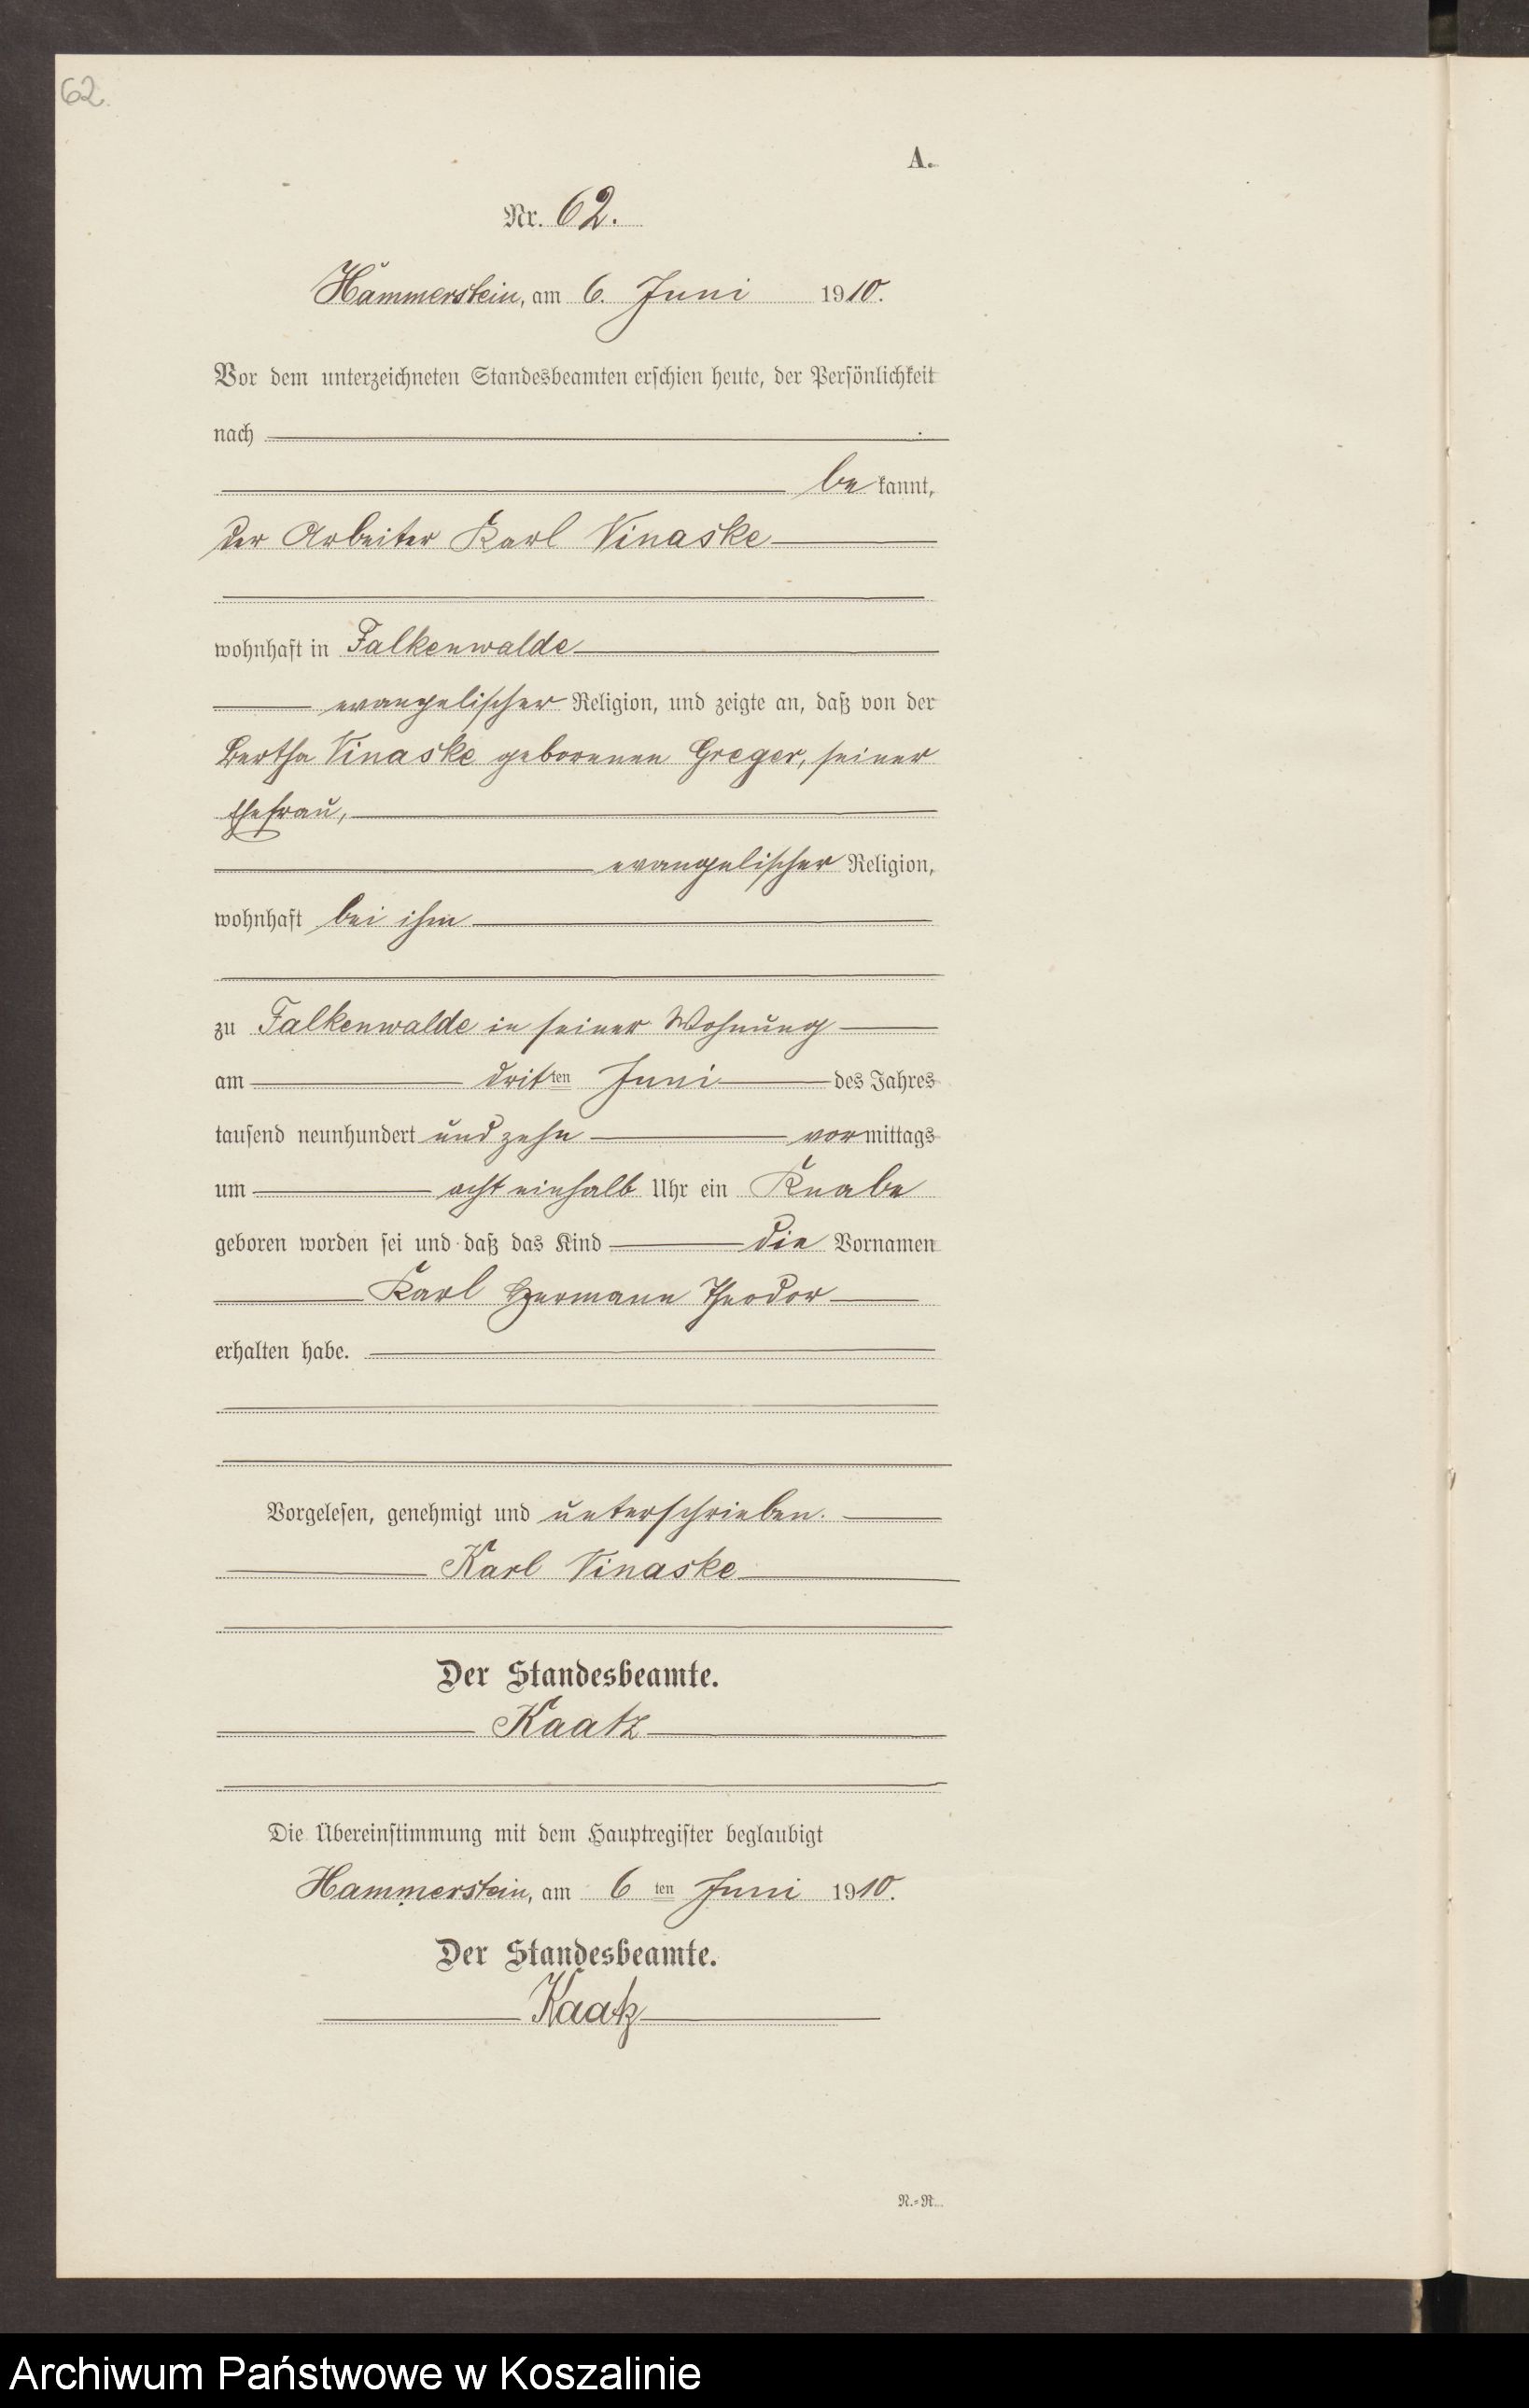 62.
A.
Nr. 62.
Hammerstein, am 6. Juni 1910.
Vor dem unterzeichneten Standesbeamten erschien heute, der Persönlichkeit
nach
be kannt,
der Arbeiter Karl Vinaske
wohnhaft in Falkenwalde
evangelischer Religion, und zeigte an, daß von der
Bertha Vinaske geborenen Greger, seiner
Ehefrau,
evangelischer Religion,
wohnhaft bei ihm
zu Falkenwalde in seiner Wohnung
am dritten Juni des Jahres
tausend neunhundert und zehn vormittags
um acht einhalb Uhr ein Knabe
geboren worden sei und daß das Kind die Vornamen
Karl Hermann Theodor
erhalten habe.
Vorgelesen, genehmigt und unterschrieben.
Karl Vinaske
Der Standesbeamte.
Kaatz
Die Übereinstimmung mit dem Hauptregister beglaubigt
Hammerstein, am 6ten Juni 1910.
Der Standesbeamte.
Kaatz
N.=R.
Archiwum Państwowe w Koszalinie